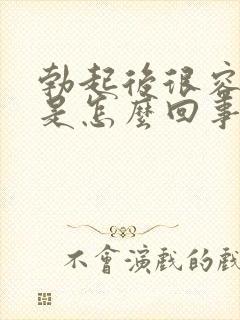 勃起後很容
是怎麼回事
不會演戲的戲